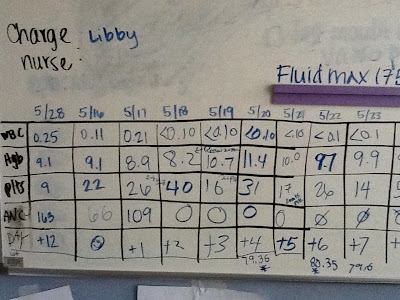 Charge Libby
nurse:
Fluid max 175
5/28 5/16 5/17 5/18 5/19 5/20 5/21 5/22 5/23
WBC 0.25 0.11 0.21 <0.10 <0.10 <0.10 <.10 <0.1 <0.1
Hgb 9.1 9.1 8.9 8.2 10.7 11.4 10.0 9.7 9.9
plts 9 22 26 40 16 31 17 26 14
ANC 163 66 109 0 0 0 0 Ø Ø
DAY +12 0 +1 +2 +3 +4 +5 +6 +7
79.36 80.35 79.6
* *